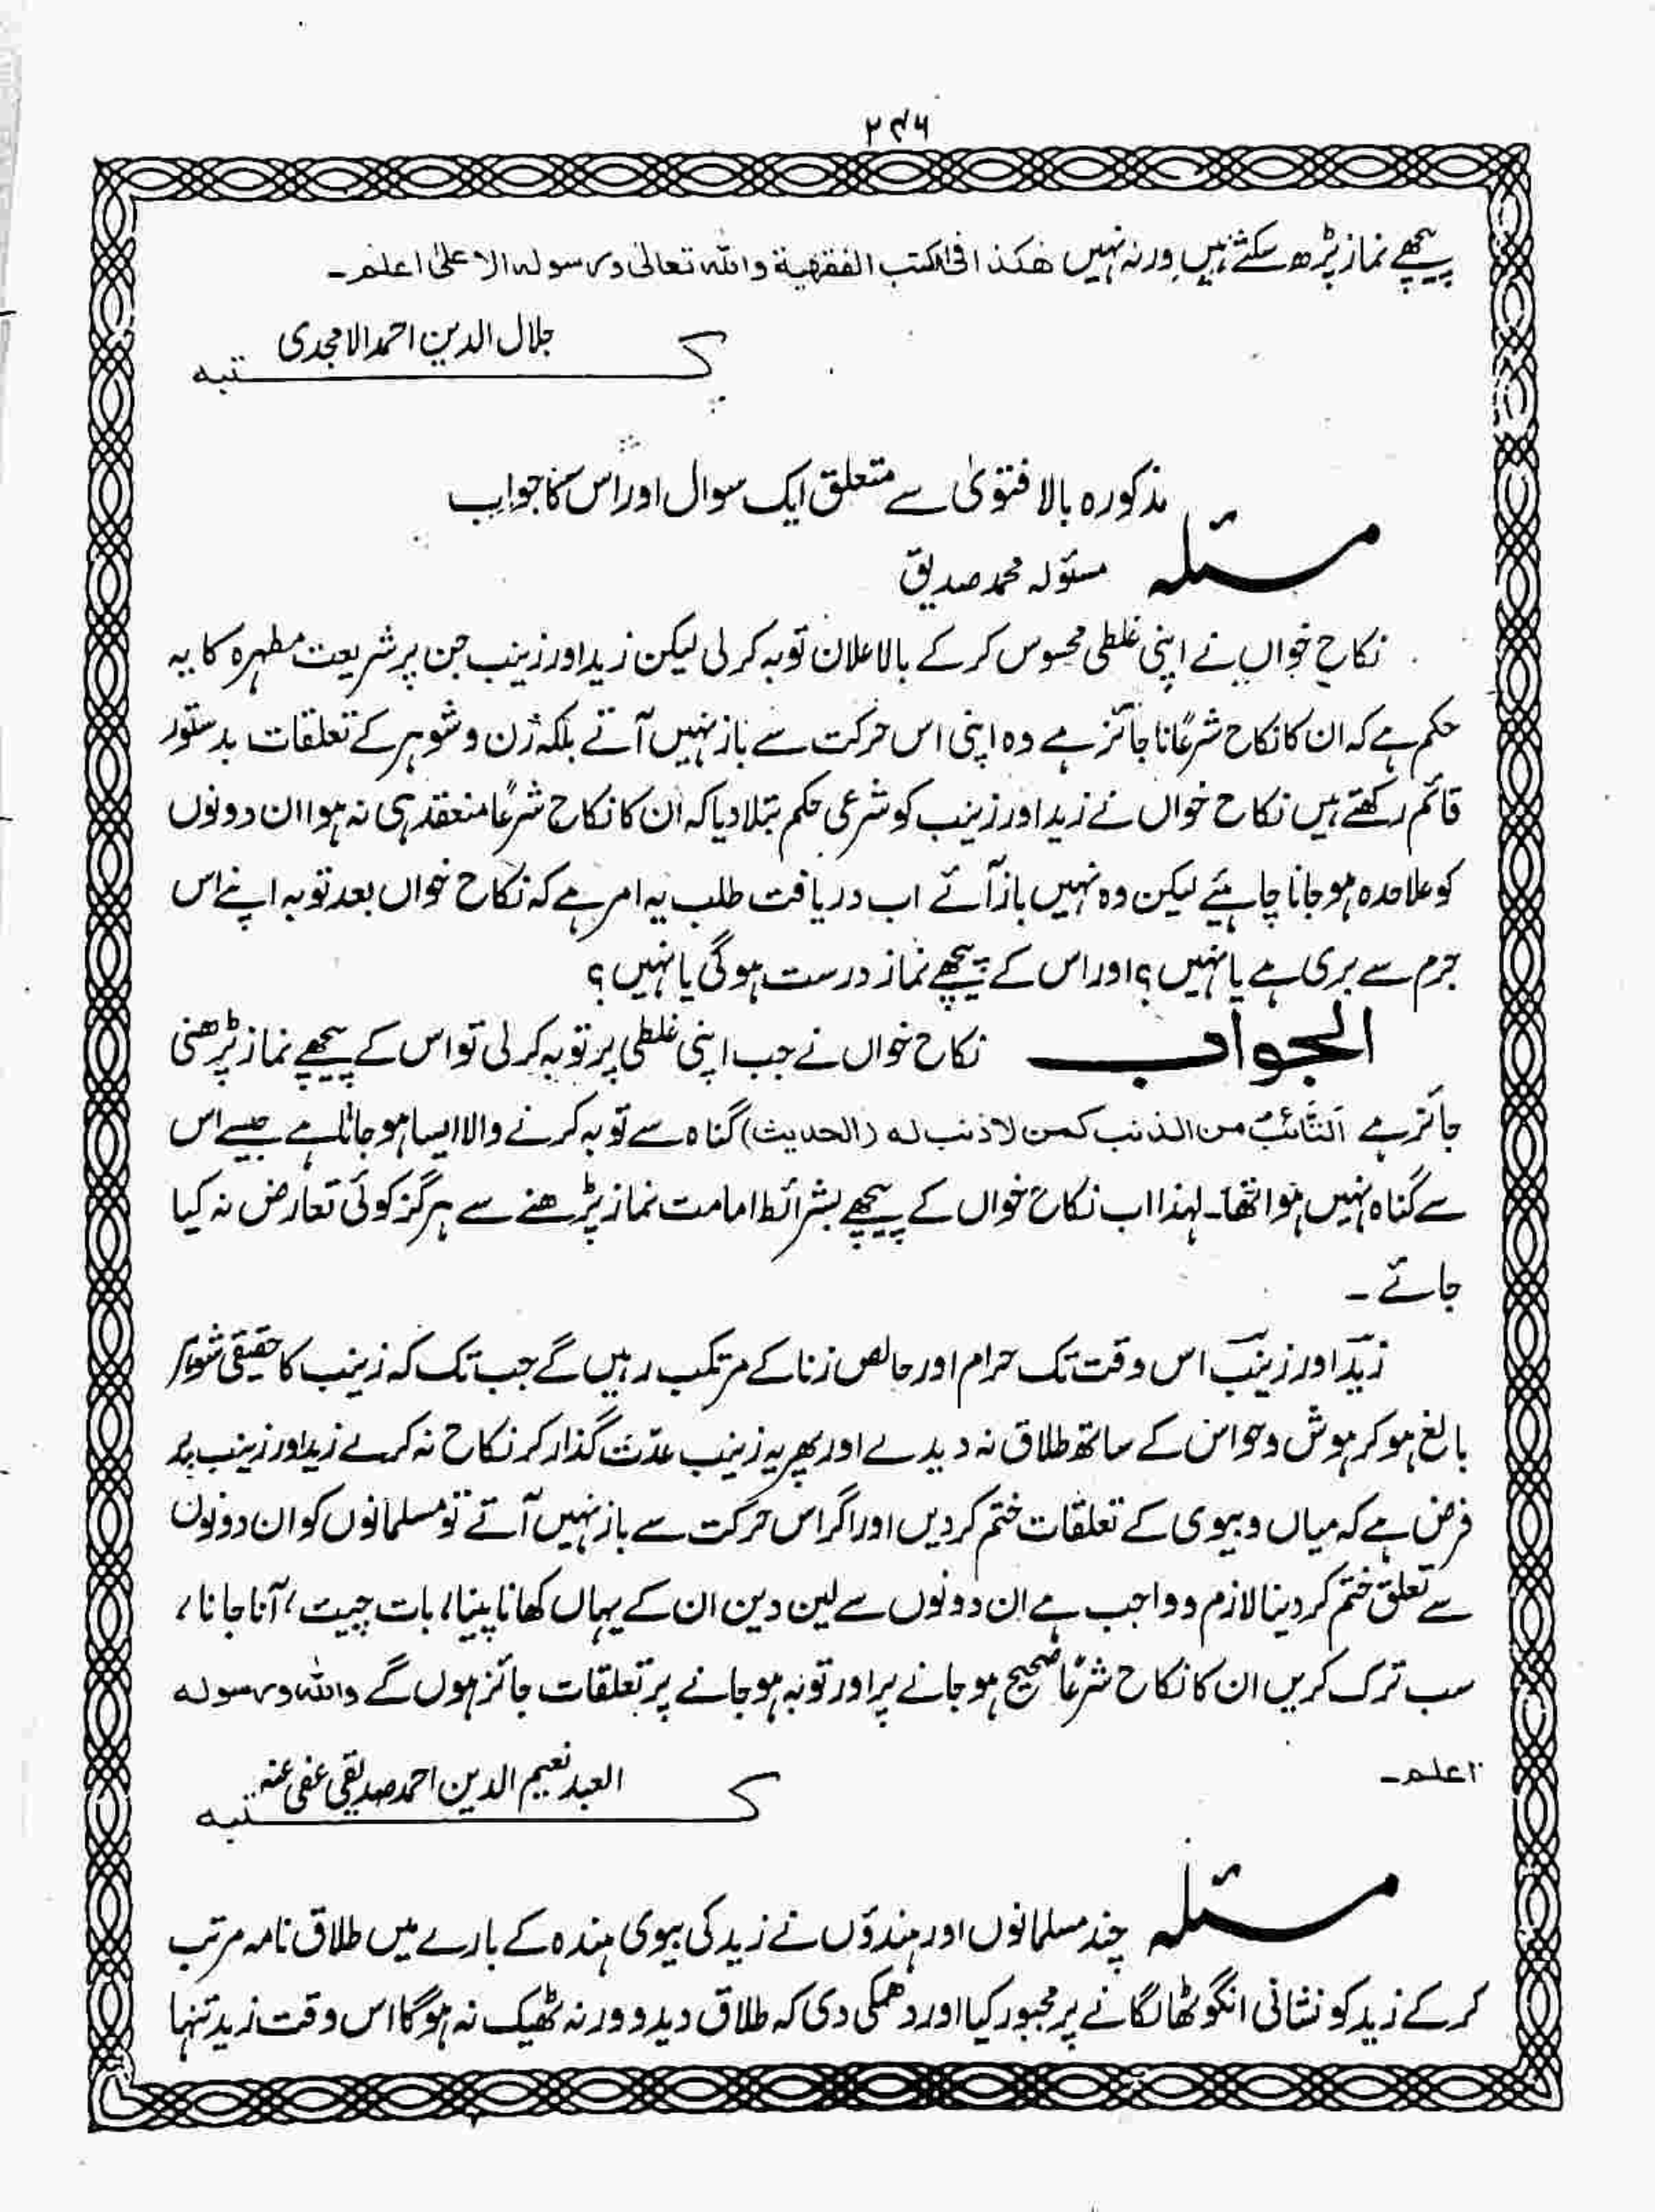 ۲۴۶
پیچھے نماز پڑھ سکتے ہیں ورنہ نہیں ھٰکذا فی الکتب الفقھیة واللہ تعالیٰ ورسولہ الاعلیٰ اعلم۔
جلال الدین احمد الامجدی
کتبہ
مذکورہ بالا فتویٰ سے متعلق ایک سوال اور اس کا جواب
مسئلہ مسئولہ محمد صدیق
نکاح خواں نے اپنی غلطی محسوس کرکے بالاعلان توبہ کرلی لیکن زید اور زینب جن پر شریعت مطہرہ کا یہ
حکم ہے کہ ان کا نکاح شرعًا ناجائز ہے وہ اپنی اس حرکت سے باز نہیں آتے بلکہ زن و شوہر کے تعلقات بدستور
قائم رکھتے ہیں نکاح خواں نے زید اور زینب کو شرعی حکم بتلا دیا کہ ان کا نکاح شرعًا منعقد ہی نہ ہوا ان دونوں
کو علاحدہ ہو جانا چاہیئے لیکن وہ نہیں باز آئے اب دریافت طلب یہ امر ہے کہ نکاح خواں بعد توبہ اپنے اس
جرم سے بری ہے یا نہیں ؟ اور اس کے پیچھے نماز درست ہوگی یا نہیں ؟
الجواب نکاح خواں نے جب اپنی غلطی پر توبہ کرلی تو اس کے پیچھے نماز پڑھنی
جائز ہے اَلتَّائبُ من الذنب کمن لا ذنب لہ (الحدیث) گناہ سے توبہ کرنے والا ایسا ہو جاتا ہے جیسے اس
سے گناہ نہیں ہوا تھا۔ لہذا اب نکاح خواں کے پیچھے بشرائط امامت نماز پڑھنے سے ہرگز کوئی تعارض نہ کیا
جائے ۔
زید اور زینب اس وقت تک حرام اور خالص زنا کے مرتکب رہیں گے جب تک کہ زینب کا حقیقی شوہر
بالغ ہوکر ہوش و حواس کے ساتھ طلاق نہ دیدے اور پھر یہ زینب عدّت گذار کر نکاح نہ کرے زید اور زینب پر
فرض ہے کہ میاں و بیوی کے تعلقات ختم کردیں اور اگر اس حرکت سے باز نہیں آتے تو مسلمانوں کو ان دونوں
سے تعلق ختم کر دینا لازم و واجب ہے ان دونوں سے لین دین ان کے یہاں کھانا پینا، بات چیت، آنا جانا،
سب ترک کریں ان کا نکاح شرعًا صحیح ہو جانے پر اور توبہ ہو جانے پر تعلقات جائز ہوں گے واللہ ورسولہ
اعلم۔
العبد نعیم الدین احمد صدیقی عفی عنہ
کتبہ
مسئلہ چند مسلمانوں اور ہندوؤں نے زید کی بیوی ہندہ کے بارے میں طلاق نامہ مرتب
کرکے زید کو نشانی انگوٹھا لگانے پر مجبور کیا اور دھمکی دی کہ طلاق دیدو ورنہ ٹھیک نہ ہوگا اس وقت زید تنہا